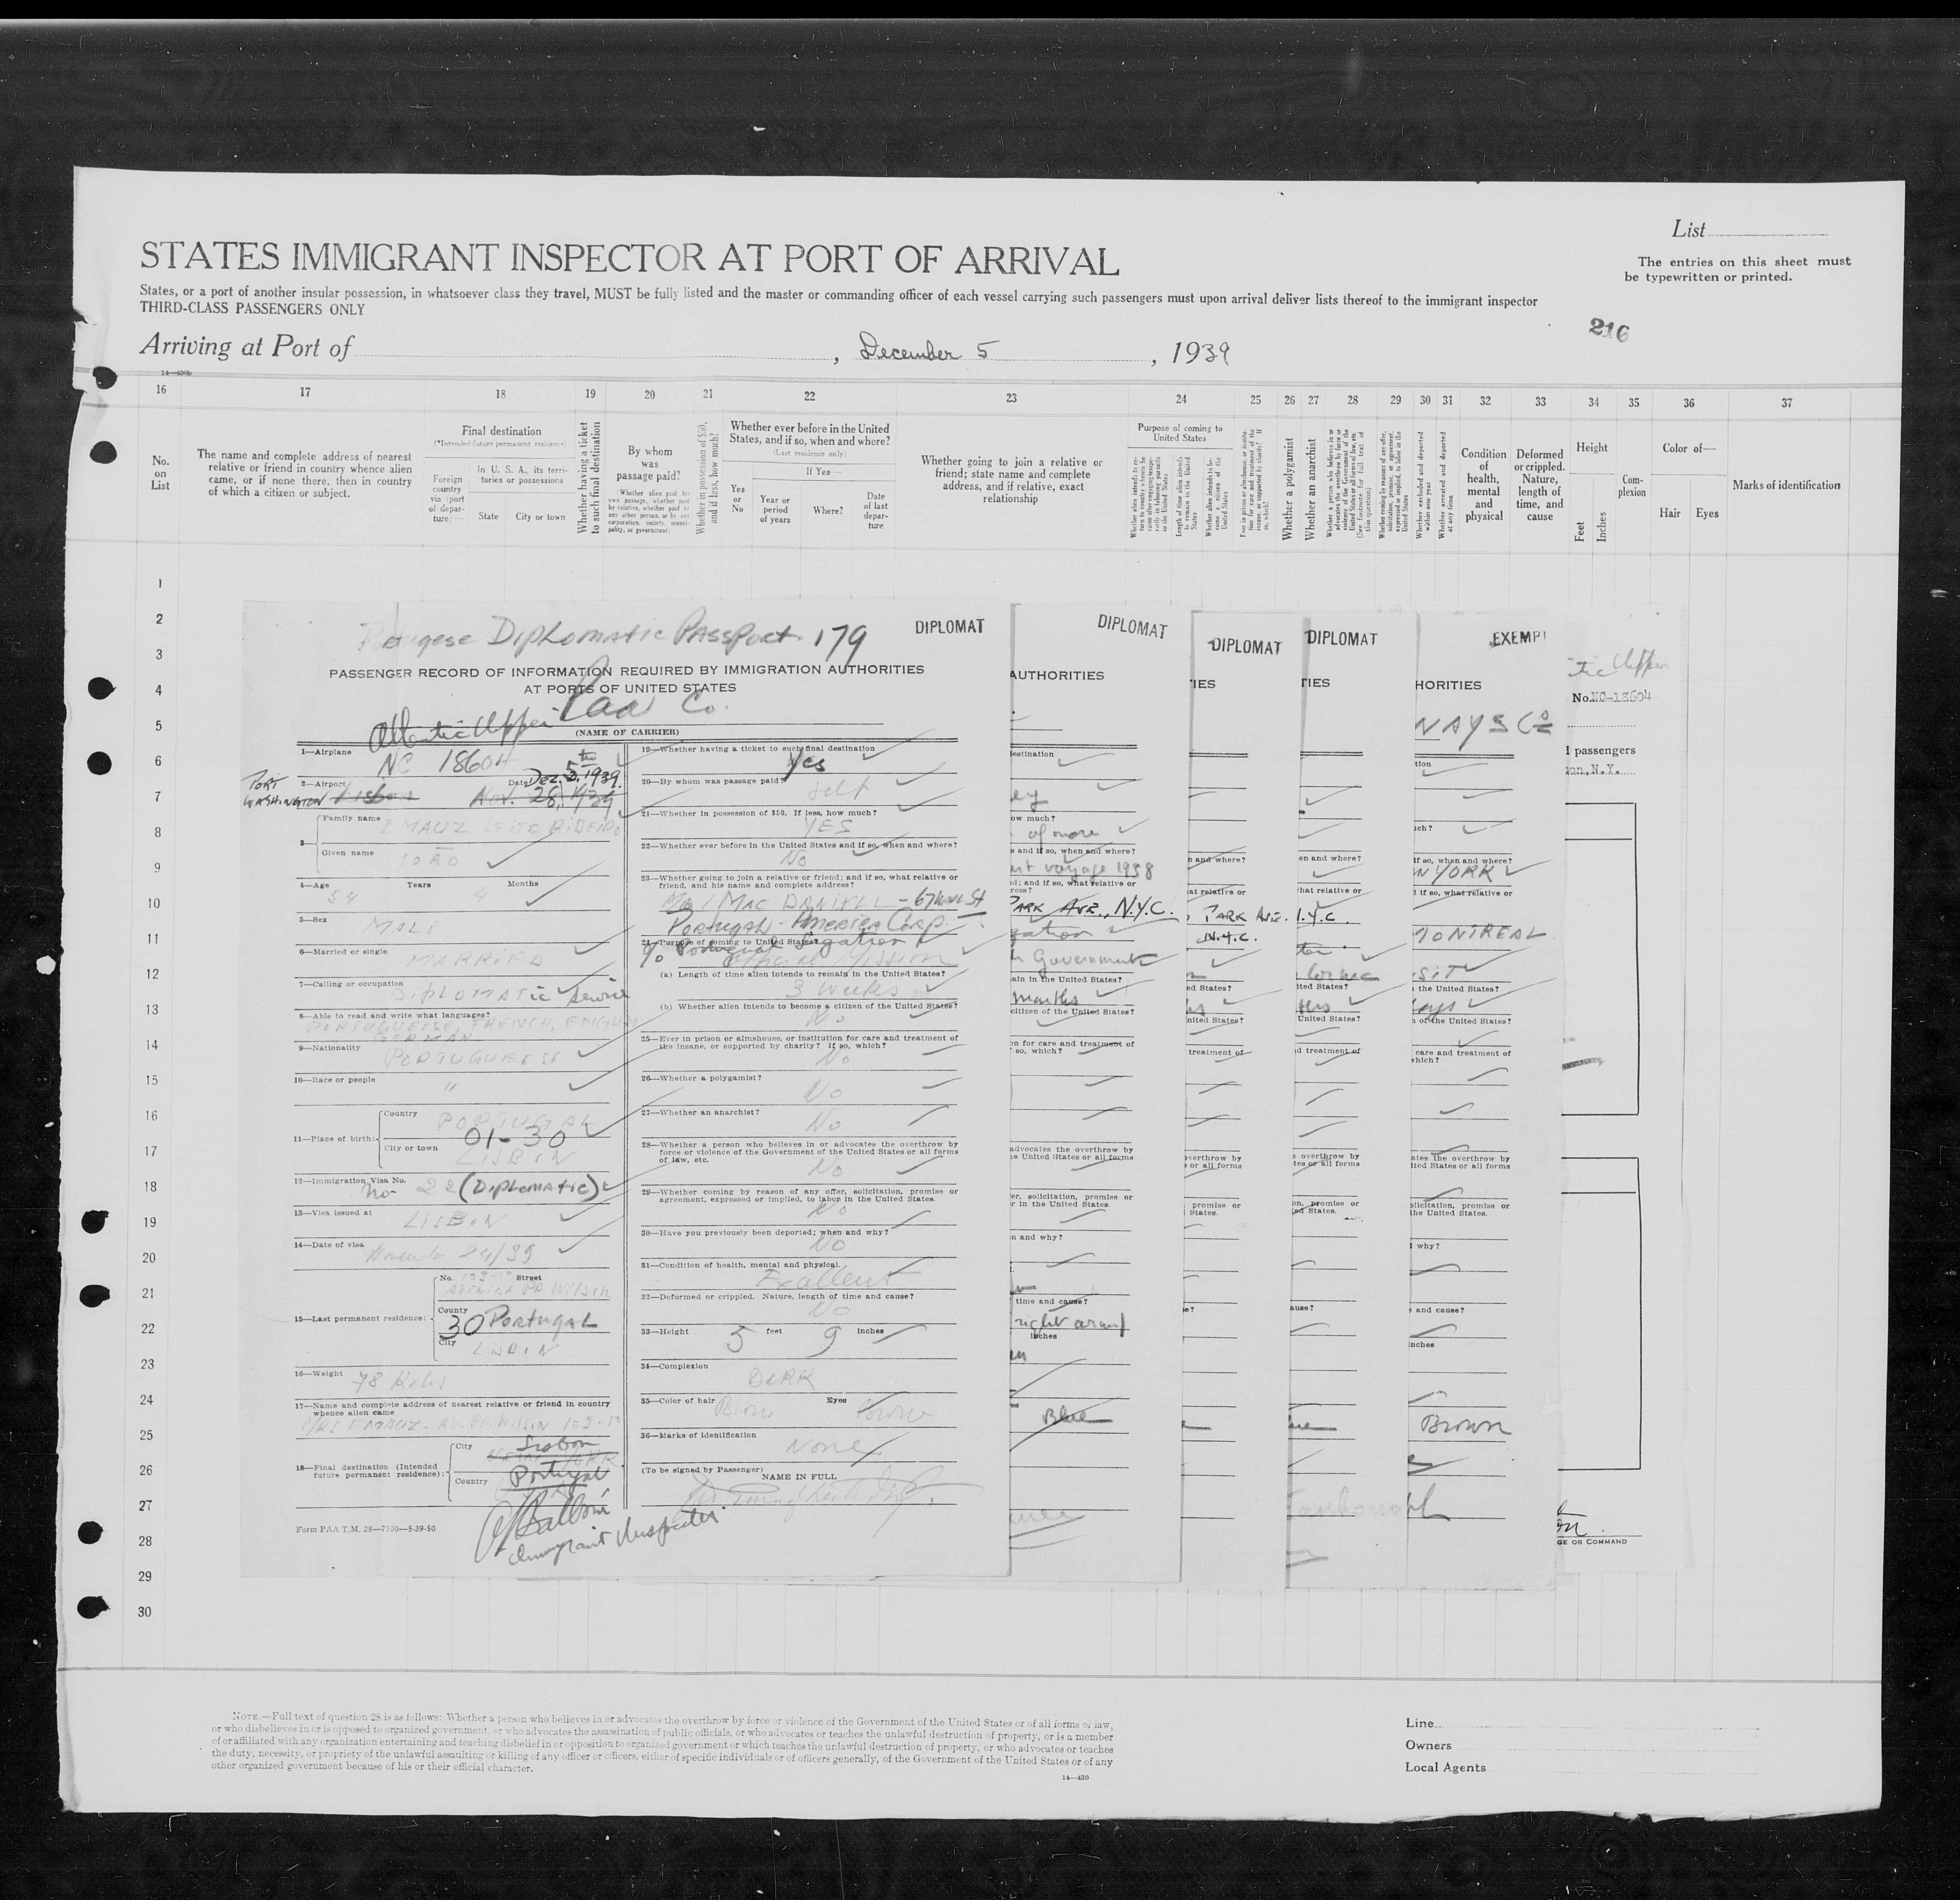 List
STATES IMMIGRANT INSPECTOR AT PORT OF ARRIVAL
The entries on this sheet must
be typewritten or printed.
States, or a port of another insular possession, in whatsoever class they travel, MUST be fully listed and the master or commanding officer of each vessel carrying such passengers must upon arrival deliver lists thereof to the immigrant inspector
THIRD-CLASS PASSENGERS ONLY
216
Arriving at Port of , December 5 , 1939
16 17 18 19 20 21 22 23 24 25 26 27 28 29 30 31 32 33 34 35 36 37
No.
on
List
The name and complete address of nearest
relative or friend in country whence alien
came, or if none there, then in country
of which a citizen or subject.
Final destination
(*Intended future permanent residence)
Foreign
country
via port
of depar-
ture
In U. S. A., its terri-
tories or possessions
State City or town
Whether having a ticket
to such final destination
By whom
was
passage paid?
(Whether alien paid his
own passage, whether paid
by relative, whether paid by
any other person, or by any
corporation, society, munici-
pality, or government)
Whether in possession of $50,
and if less, how much?
Whether ever before in the United
States, and if so, when and where?
(Last residence only)
Yes
or
No
If Yes—
Year or
period
of years
Where?
Date
of last
depar-
ture
Whether going to join a relative or
friend; state name and complete
address, and if relative, exact
relationship
Purpose of coming to
United States
Whether a polygamist
Whether an anarchist
Whether excluded and deported
within one year
Whether arrested and deported
at any time
Condition
of
health,
mental
and
physical
Deformed
or crippled.
Nature,
length of
time, and
cause
Height
Feet
Inches
Com-
plexion
Color of—
Hair Eyes
Marks of identification
1
2
3
4
5
6
7
8
9
10
11
12
13
14
15
16
17
18
19
20
21
22
23
24
25
26
27
28
29
30
Diplomatic Passport 179
DIPLOMAT
PASSENGER RECORD OF INFORMATION REQUIRED BY IMMIGRATION AUTHORITIES
AT PORTS OF UNITED STATES
Atlantic Clipper Paa Co.
(NAME OF CARRIER)
1—Airplane NC 18604
2—Airport Lisbon Date Nov. 28, 1939
PORT WASHINGTON Dec. 5th, 1939
3— Family name EMAUZ LEITE RIBEIRO
Given name JOÃO
4—Age 54 Years 4 Months
5—Sex MALE
6—Married or single MARRIED
7—Calling or occupation DIPLOMATIC Service
8—Able to read and write what languages?
PORTUGUESE, FRENCH, ENGLISH
GERMAN
9—Nationality PORTUGUESE
10—Race or people "
11—Place of birth: Country PORTUGAL
01-30
City or town LISBON
12—Immigration Visa No.
No- 22 (DIPLOMATIC)
13—Visa issued at LISBON
14—Date of visa November 24/39
15—Last permanent residence: No. Street
County 30 PORTUGAL
City LISBON
16—Weight 78 Kilos
17—Name and complete address of nearest relative or friend in country
whence alien came
18—Final destination (Intended
future permanent residence): City Lisbon
Country Portugal
Form PAA T.M. 28—7500—5-39-50
Immigrant Inspector
19—Whether having a ticket to such final destination
Yes
20—By whom was passage paid?
Self
21—Whether in possession of $50. If less, how much?
YES
22—Whether ever before in the United States and if so, when and where?
No
23—Whether going to join a relative or friend; and if so, what relative or
friend, and his name and complete address?
- 67 Wall St
Portugal - America Corp.
24—Purpose of coming to United States?
Official Mission
(a) Length of time alien intends to remain in the United States?
3 Weeks
(b) Whether alien intends to become a citizen of the United States?
No
25—Ever in prison or almshouse, or institution for care and treatment of
the insane, or supported by charity? If so, which?
No
26—Whether a polygamist?
No
27—Whether an anarchist?
No
28—Whether a person who believes in or advocates the overthrow by
force or violence of the Government of the United States or all forms
of law, etc.
No
29—Whether coming by reason of any offer, solicitation, promise or
agreement, expressed or implied, to labor in the United States.
No
30—Have you previously been deported; when and why?
No
31—Condition of health, mental and physical.
Excellent
32—Deformed or crippled. Nature, length of time and cause?
No
33—Height 5 feet 9 inches
34—Complexion
DARK
35—Color of hair Brown Eyes Brown
36—Marks of identification
None
(To be signed by Passenger)
NAME IN FULL
DIPLOMAT
AUTHORITIES
estination
ow much?
of more
s and if so, when and where?
voyage 1938
d; and if so, what relative or
PARK AVE., N.Y.C.
Government
ain in the United States?
months
citizen of the United States?
on for care and treatment of
so, which?
advocates the overthrow by
e United States or all forms
er, solicitation, promise or
r in the United States.
n and why?
time and cause?
right arm
inches
Blue
DIPLOMAT
IES
n and where?
at relative or
PARK AVE.
N.Y.C.
ed States?
nited States?
treatment of
verthrow by
or all forms
promise or
States.
e?
DIPLOMAT
TIES
en and where?
hat relative or
N.Y.C.
ited States?
United States?
d treatment of
overthrow by
tes or all forms
on, promise or
ed States.
ause?
EXEMPT
HORITIES
WAYS Co
tion
uch?
if so, when and where?
W YORK
if so, what relative or
MONTREAL
the United States?
days
n of the United States?
care and treatment of
which?
ates the overthrow by
ited States or all forms
olicitation, promise or
the United States.
why?
e and cause?
inches
Brown
tic Clipper
No. NC-18604
d passengers
on, N.Y.
GE OR COMMAND
NOTE.—Full text of question 28 is as follows: Whether a person who believes in or advocates the overthrow by force or violence of the Government of the United States or of all forms of law,
or who disbelieves in or is opposed to organized government, or who advocates the assassination of public officials, or who advocates or teaches the unlawful destruction of property, or is a member
of or affiliated with any organization entertaining and teaching disbelief in or opposition to organized government or which teaches the unlawful destruction of property, or who advocates or teaches
the duty, necessity, or propriety of the unlawful assaulting or killing of any officer or officers, either of specific individuals or of officers generally, of the Government of the United States or of any
other organized government because of his or their official character.
14—430
Line
Owners
Local Agents